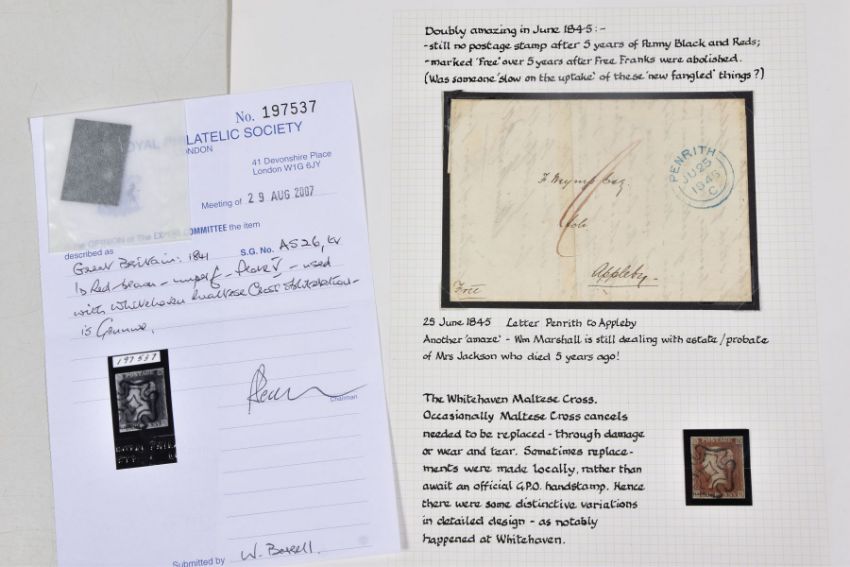 No. 197537
ROYAL PHILATELIC SOCIETY
LONDON
41 Devonshire Place
London W1G 6JY
Meeting of 29 AUG 2007
OPINION OF THE EXPERT COMMITTEE the item
described as
S.G. No. AS26,
Great Britain: 1841
1D Red-brown - imperf - Plate V - used
with Whitehaven Maltese Cross
is Genuine.
197537
POSTAGE
Chairman
Submitted by W. Boxell.
Doubly amazing in June 1845:-
-still no postage stamp after 5 years of Penny Black and Reds;
-marked 'Free' over 5 years after Free Franks were abolished.
(Was someone 'slow on the uptake' of these 'new fangled' things?)
PENRITH
JU 25
1845
C
Appleby
Free
25 June 1845 Letter Penrith to Appleby
Another 'amaze' - Wm Marshall is still dealing with estate/probate
of Mrs Jackson who died 5 years ago!
The Whitehaven Maltese Cross.
Occasionally Maltese Cross cancels
needed to be replaced - through damage
or wear and tear. Sometimes replace-
ments were made locally, rather than
await an official G.P.O. handstamp. Hence
there were some distinctive variations
in detailed design - as notably
happened at Whitehaven.
POSTAGE